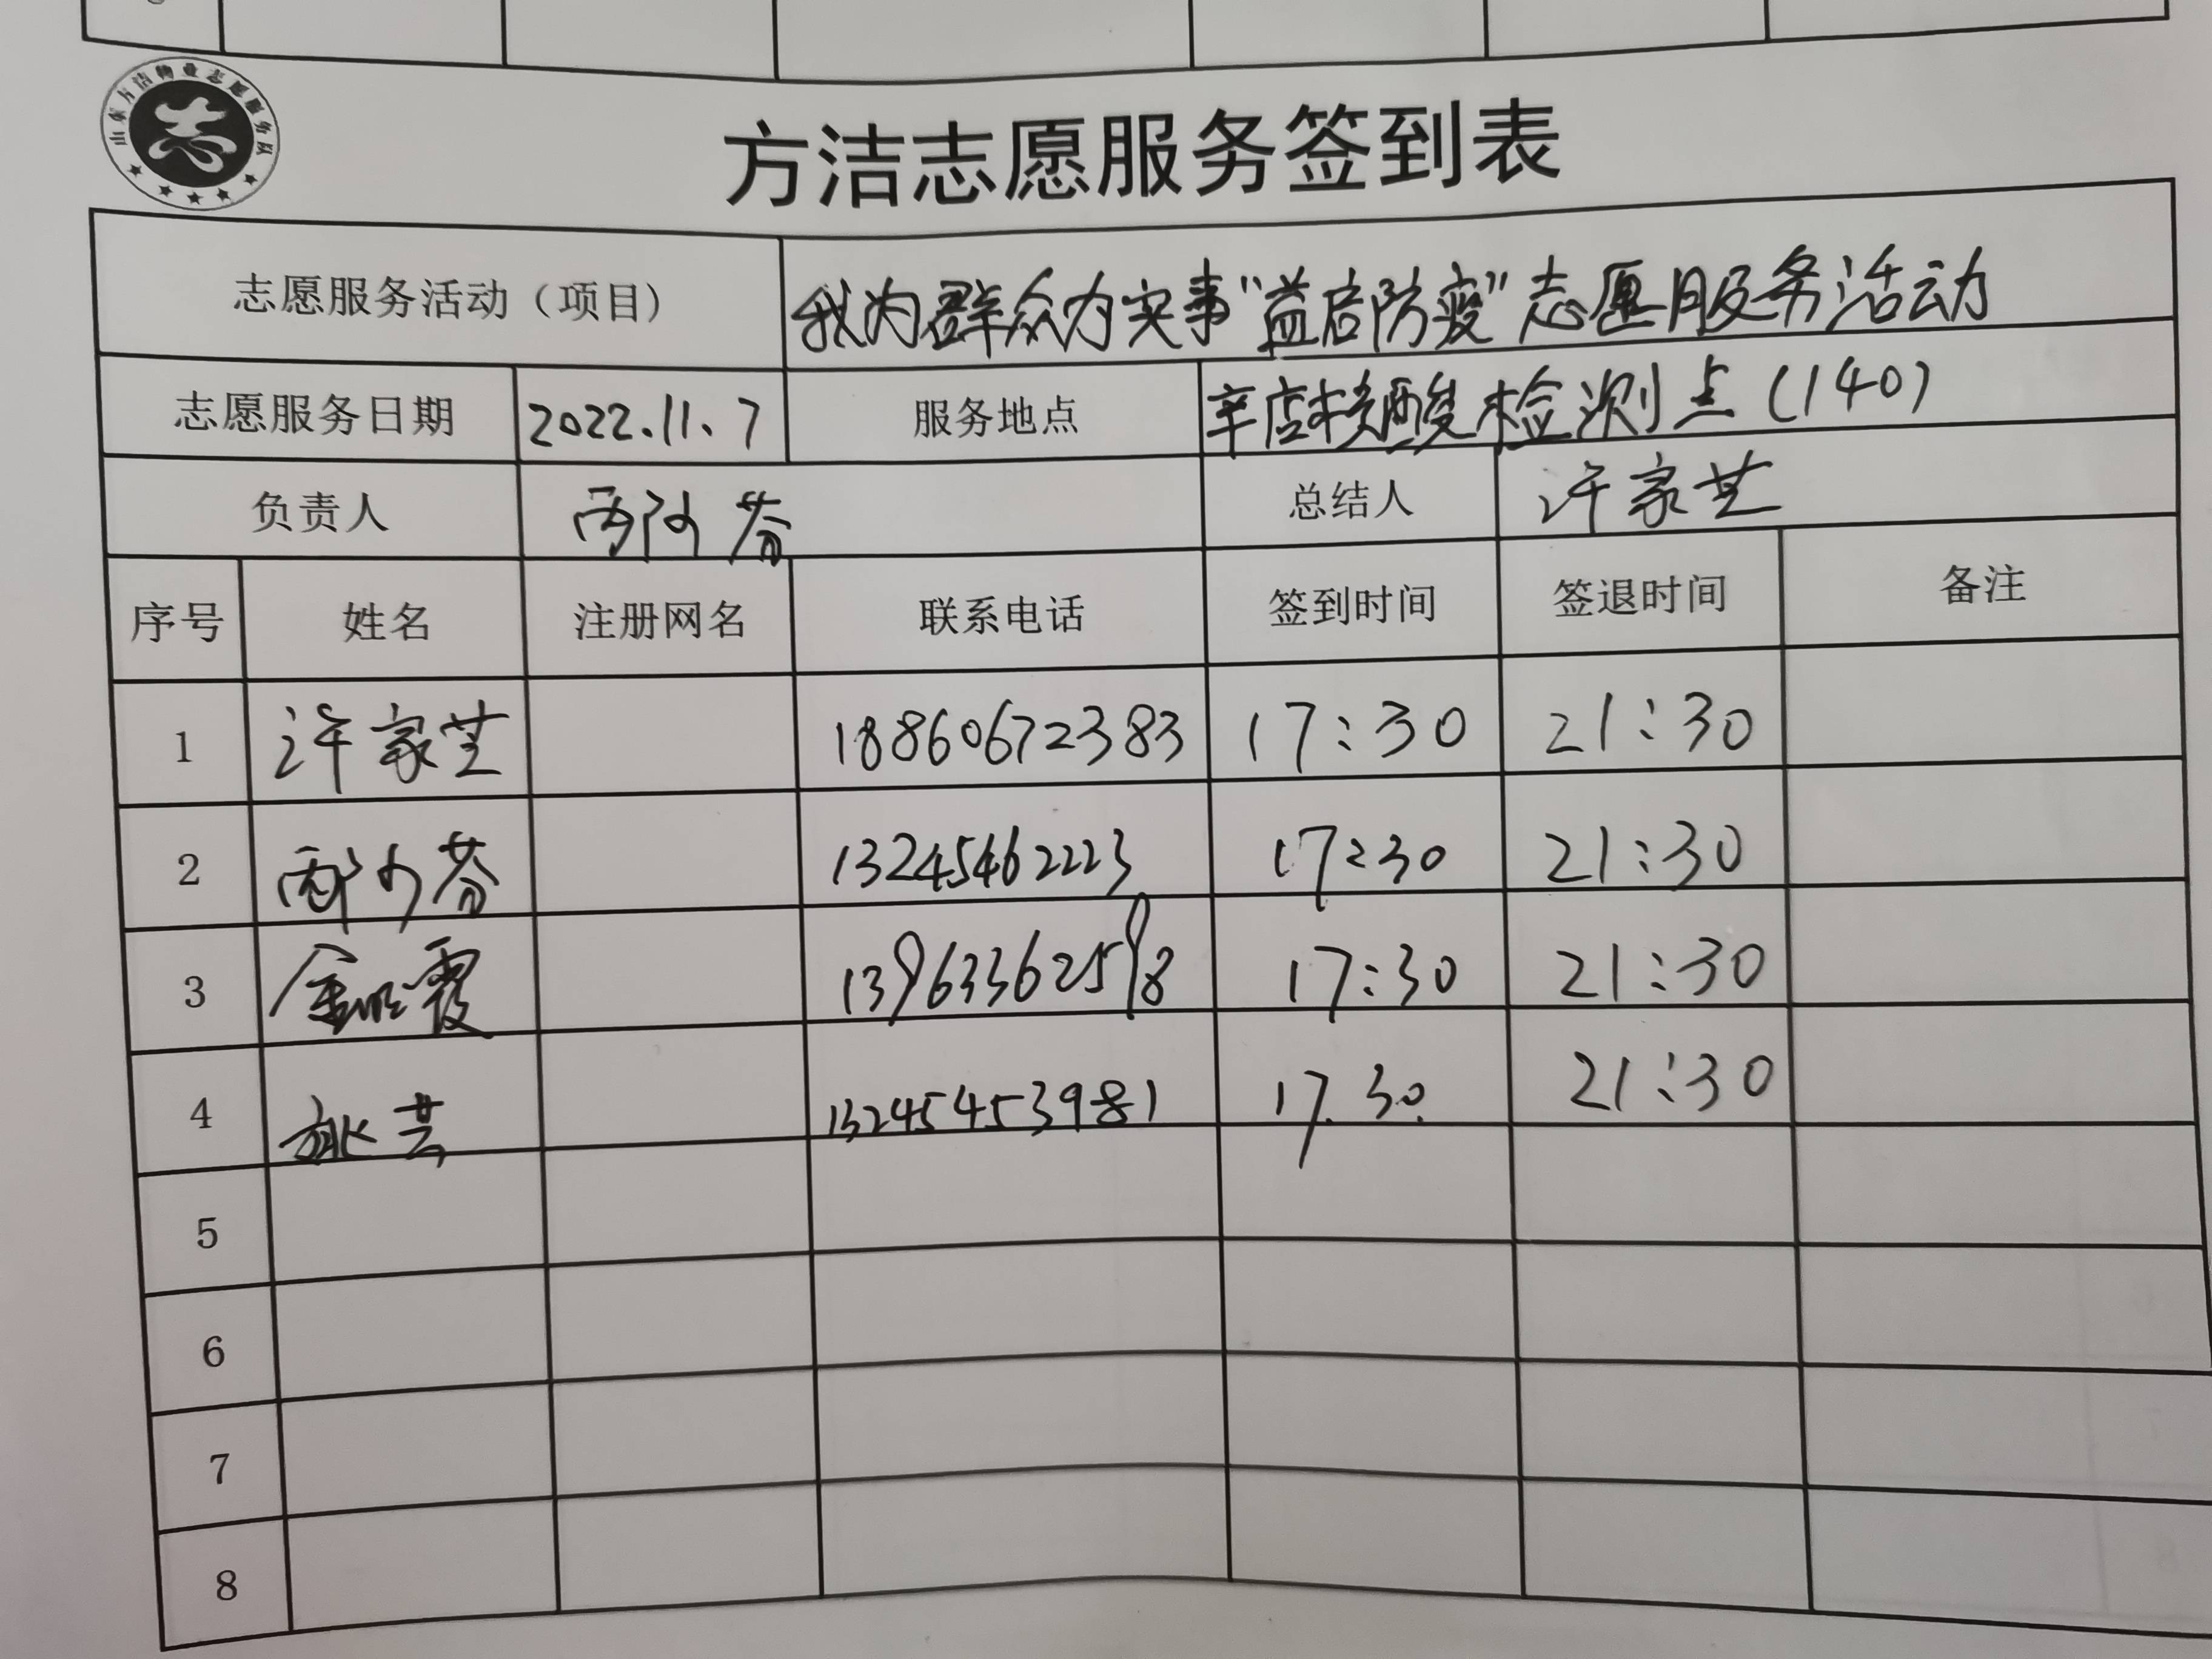 山东方洁物业志愿服务队
志
方洁志愿服务签到表
志愿服务活动（项目） 我为群众办实事“益启防疫”志愿服务活动
志愿服务日期 2022.11.7 服务地点 辛店核酸检测点(140)
负责人 总结人 许家芝
序号 姓名 注册网名 联系电话 签到时间 签退时间 备注
1 许家芝 18860672383 17:30 21:30
2 13245462223 17:30 21:30
3 霞 13963362598 17:30 21:30
4 姚芸 13245453981 17.30 21:30
5
6
7
8